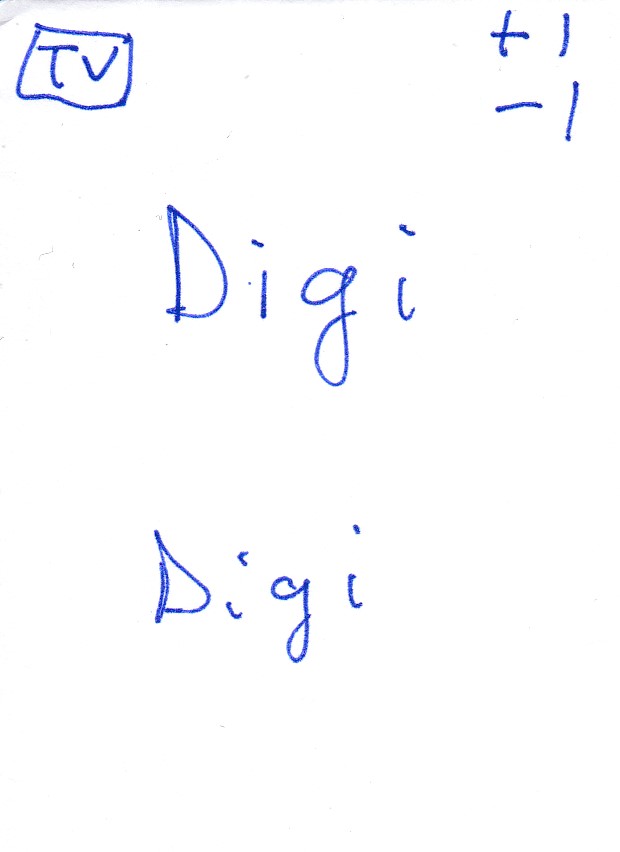 TV
+1
-1
Digi
Digi